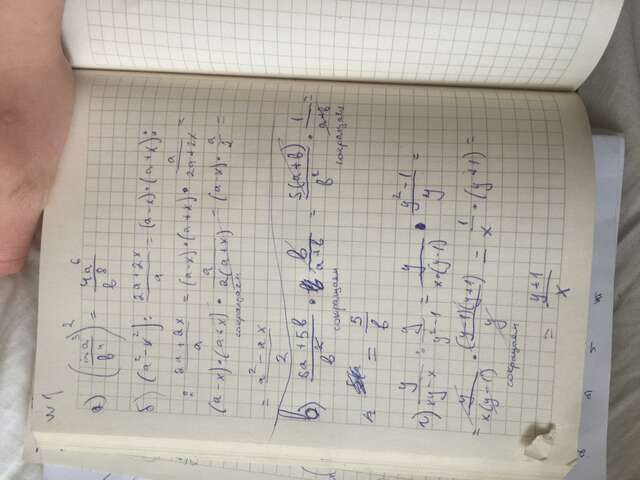 №1
а) (2a³/b⁴)² = 4a⁶/b⁸
б) (a²-x²) : 2a+2x/a = (a-x)·(a+x) :
: 2a+2x/a = (a-x)·(a+x)· a/2a+2x =
(a-x)·(a+x)· a/2(a+x) = (a-x)· a/2 =
сокращаем
= a²-ax/2
в) 5a+5b/b² · b/a+b = 5(a+b)/b² · 1/a+b =
сокращаем сокращаем
= 5/b
г) y/xy-x : y/y²-1 = y/x·(y-1) · y²-1/y =
= y/x(y-1) · (y-1)(y+1)/y = 1/x · (y+1) =
сокращаем
= y+1/x